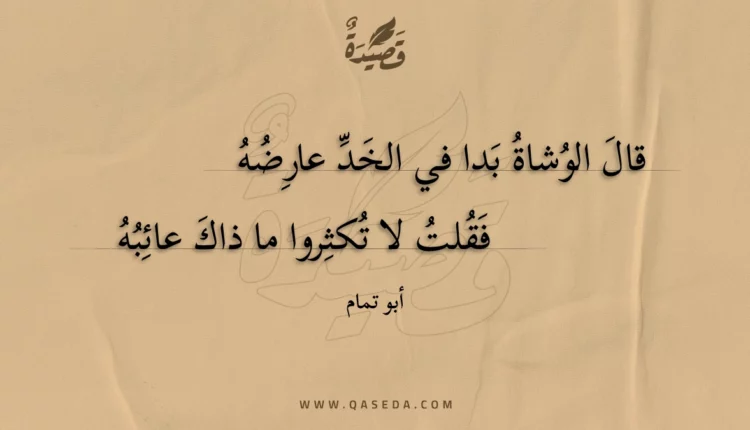 قَصِيْدَةٌ
قالَ الوُشاةُ بَدا في الخَدِّ عارِضُهُ
فَقُلتُ لا تُكثِروا ما ذاكَ عائِبُهُ
أبو تمام
WWW.QASEDA.COM